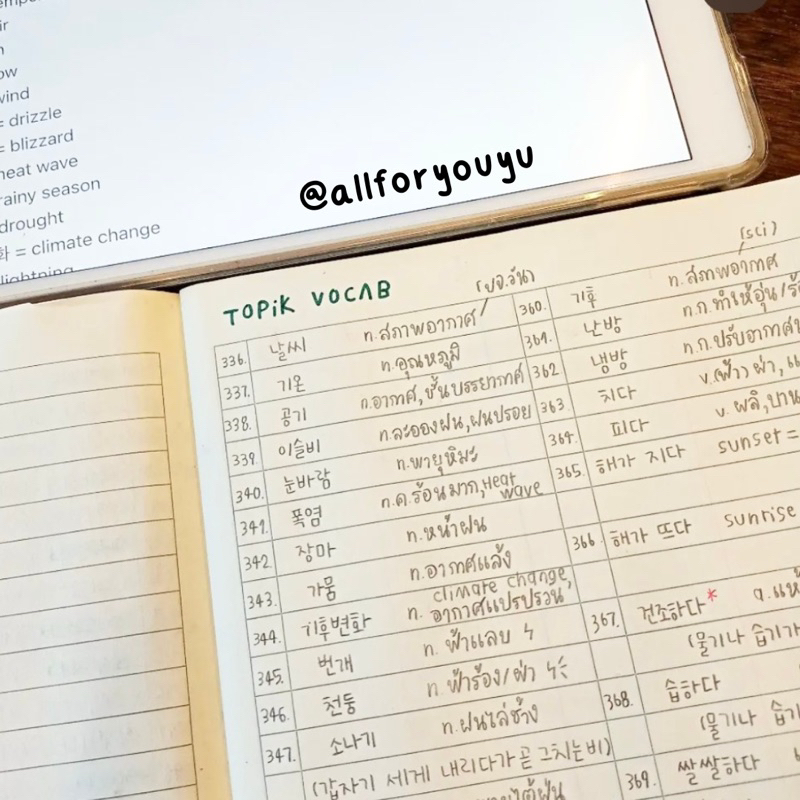 ow
wind
= drizzle
= blizzard
heat wave
rainy season
drought
화 = climate change
lightning
@allforyouyu
TOPIK VOCAB
(ปจ.วัน)
336. 날씨 n.สภาพอากาศ
337. 기온 n.อุณหภูมิ
338. 공기 n.อากาศ, ชั้นบรรยากาศ
339. 이슬비 n.ละอองฝน, ฝนปรอย
340. 눈바람 n.พายุหิมะ
341. 폭염 n.ค.ร้อนมาก, Heat wave
342. 장마 n.หน้าฝน
343. 가뭄 n.อากาศแล้ง
344. 기후변화 n. climate change, อากาศแปรปรวน
345. 번개 n. ฟ้าแลบ
346. 천둥 n.ฟ้าร้อง/ผ่า
347. 소나기 n.ฝนไล่ช้าง
(갑자기 세게 내리다가 곧 그치는 비)
(sci)
360. 기후 n.สภาพอากาศ
361. 난방 n.ก.ทำให้อุ่น/
362 냉방 n.ก.ปรับอากาศ
363. 치다 v.(ฟ้า) ผ่า,
364. 피다 v. ผลิ, บาน
365. 해가 지다 sunset =
366. 해가 뜨다 sunrise
367. 건조하다* a.
(물기나 습기가
368. 습하다
(물기나 습기
369. 쌀쌀하다